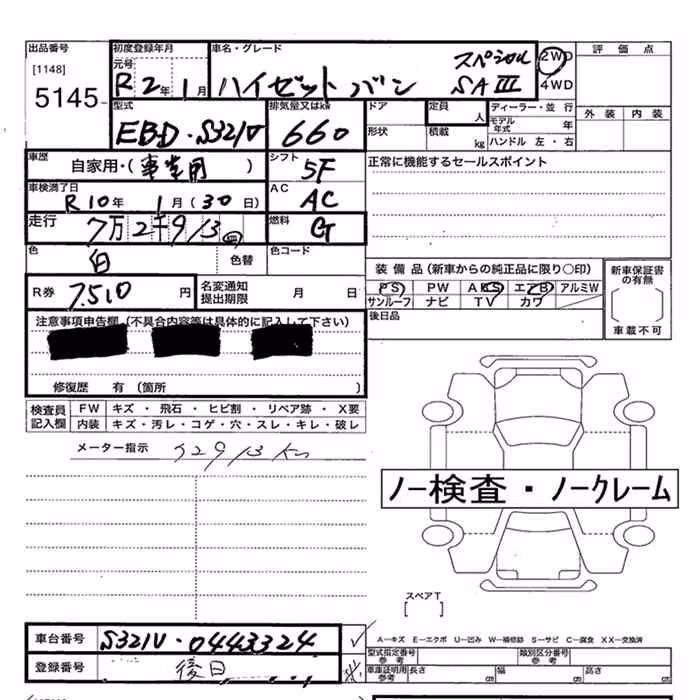 出品番号 初度登録年月 車名・グレード 評価点
[1148] 元号 スペシャル 2WD
5145 R2年1月 ハイゼットバン SAⅢ 4WD
型式 排気量又はkw ドア 定員 人 ディーラー・並行 外装 内装
EBD-S321V 660 形状 積載 kg モデル年式 年
ハンドル 左・右
車歴 シフト 正常に機能するセールスポイント
自家用・(事業用) 5F
車検満了日 AC
R10年1月(30日) AC
走行 7万2千913 燃料 G
色 白 色替 色コード
装備品(新車からの純正品に限り○印) 新車保証書の有無
R券 7,510円 名変通知提出期限 月 日 PS PW ABS エアB アルミW
サンルーフ ナビ TV カワ
車載不可
注意事項申告欄(不具合内容等は具体的に記入して下さい) 後日品
修復歴 有(箇所 )
検査員記入欄 FW キズ・飛石・ヒビ割・リペア跡・X要
内装 キズ・汚レ・コゲ・穴・スレ・キレ・破レ
メーター指示 72913km
ノー検査・ノークレーム
スペアT
[ ]
車台番号 S321V-0443324 A-キズ E-エクボ U-凹み W-補修跡 S-サビ C-腐食 XX-交換済
型式指定番号 参考 類別区分番号 参考
登録番号 後日 車庫証明用 参考 長さ cm 幅 cm 高さ cm